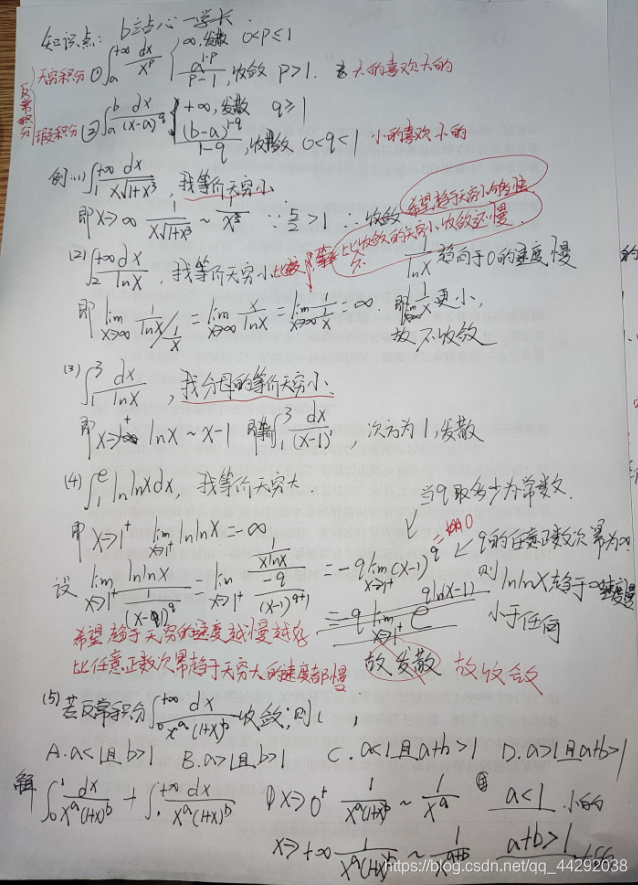 知识点: b站心一学长
反常积分
无穷积分 ① ∫_a^{+∞} dx/x^p { ∞, 发散 0<p≤1
a^{1-p}/(p-1), 收敛 p>1. 大的喜欢大的
瑕积分 ② ∫_a^b dx/(x-a)^q { +∞, 发散 q≥1
(b-a)^{1-q}/(1-q), 收敛 0<q<1 小的喜欢小的
例: (1) ∫_1^{+∞} dx/(x√(1+x³)), 找等价无穷小
即 x→∞ 1/(x√(1+x³)) ~ 1/x^{5/2} ∵ 5/2>1 ∴ 收敛
(2) ∫_2^{+∞} dx/lnx, 找等价无穷小 比较 1/lnx 趋向于0的速度慢
比收敛的无穷小收敛速慢
即 lim_{x→∞} (1/lnx)/(1/x) = lim_{x→∞} x/lnx = lim_{x→∞} 1/(1/x) = ∞. 更小,
故不收敛
(3) ∫_1^3 dx/lnx, 找分母的等价无穷小.
即 x→1⁺ lnx ~ x-1 即 ∫_1^3 dx/(x-1)^1, 次方为1, 发散
(4) ∫_1^e lnlnx dx, 找等价无穷大.
当q取多少为常数.
即 x→1⁺ lim_{x→1⁺} lnlnx = -∞
q的任意正数次幂为
设 lim_{x→1⁺} lnlnx/(1/(x-1)^q) = lim_{x→1⁺} (1/(xlnx))/(-q/(x-1)^{q+1}) = -q lim_{x→1⁺} (x-1)^q = 0
则 lnlnx 趋于∞速度慢
= -q lim_{x→1⁺} e^{qln(x-1)}
小于任何
希望趋于无穷的速度越慢越好
比任意正数次幂趋于无穷大的速度都慢 故发散 故收敛
(5) 若反常积分 ∫_0^{+∞} dx/(x^a(1+x)^b) 收敛, 则( ,
A. a<1且b>1 B. a>1且b>1 C. a<1且a+b>1 D. a>1且a+b>1
解 ∫_0^1 dx/(x^a(1+x)^b) + ∫_1^{+∞} dx/(x^a(1+x)^b) ① x→0⁺ 1/(x^a(1+x)^b) ~ 1/x^a a<1 小的
x→+∞ 1/(x^a(1+x)^b) ~ 1/x^{a+b} a+b>1
https://blog.csdn.net/qq_44292038